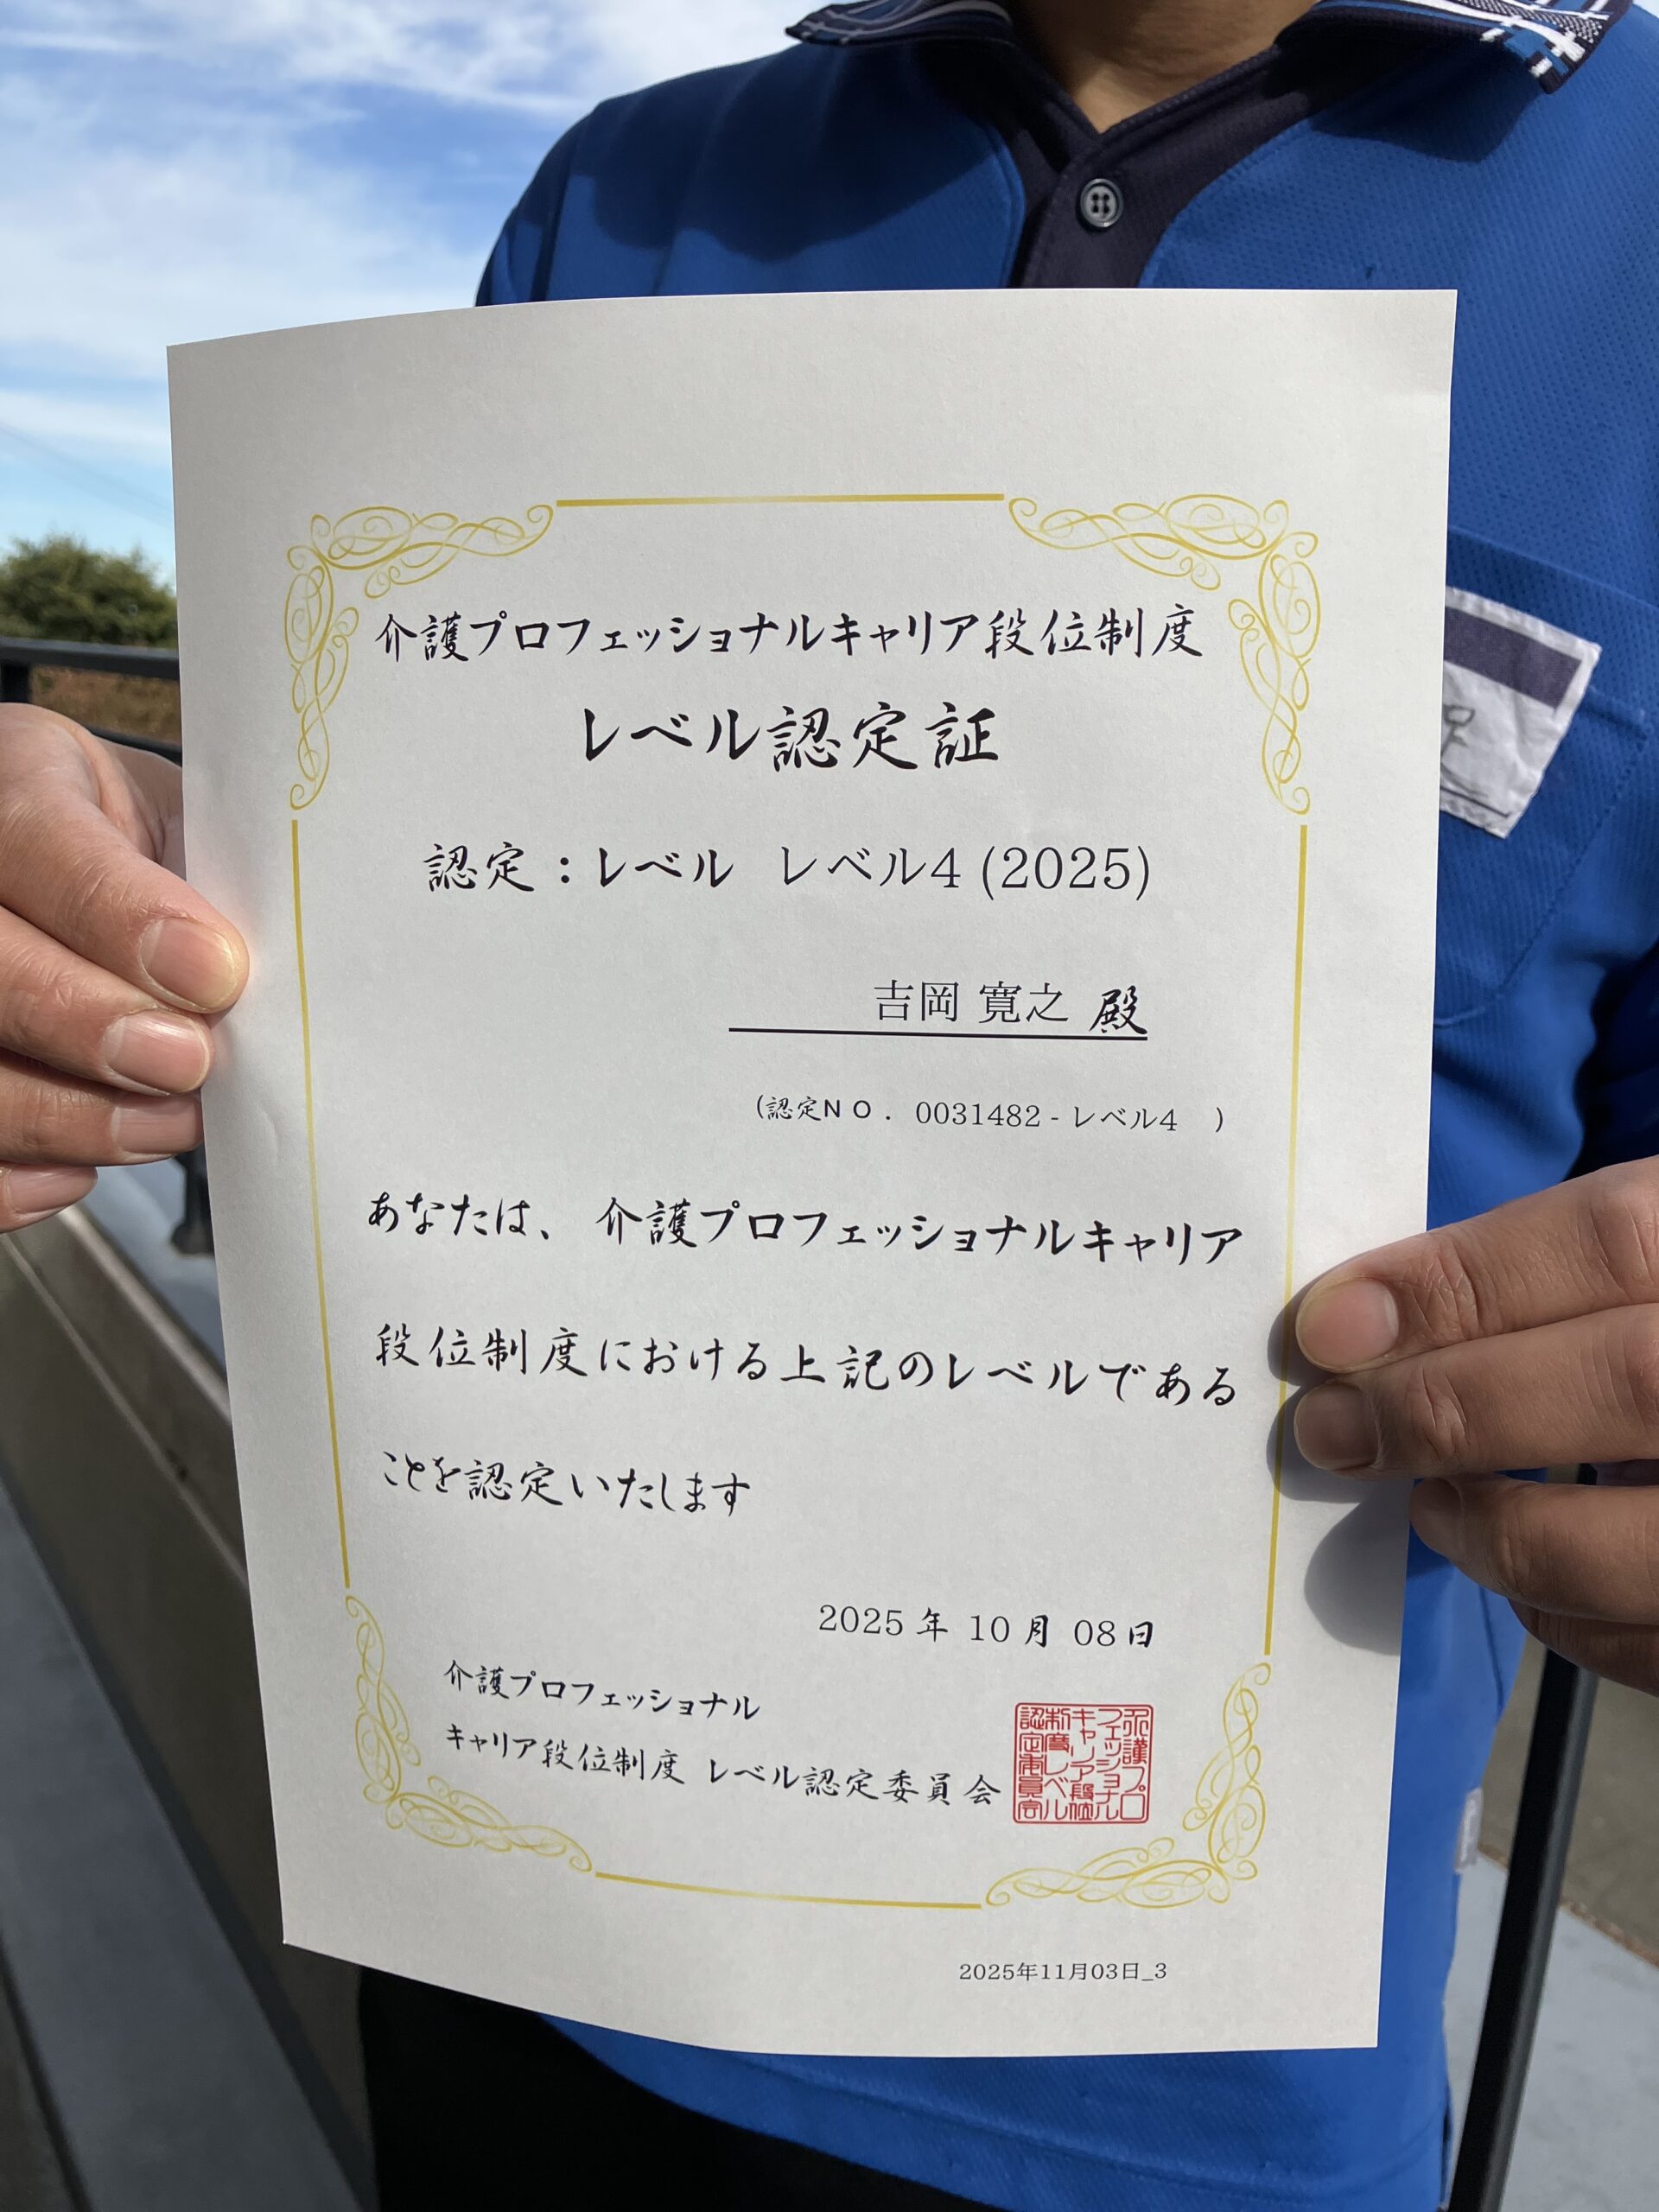 介護プロフェッショナルキャリア段位制度
レベル認定証
認定：レベル レベル4 (2025)
吉岡 寛之 殿
(認定NO. 0031482 - レベル4 )
あなたは、介護プロフェッショナルキャリア
段位制度における上記のレベルである
ことを認定いたします
2025 年 10 月 08 日
介護プロフェッショナル
キャリア段位制度 レベル認定委員会
介護プロ
フェッショナル
キャリア段位
制度レベル
認定委員会
2025年11月03日_3